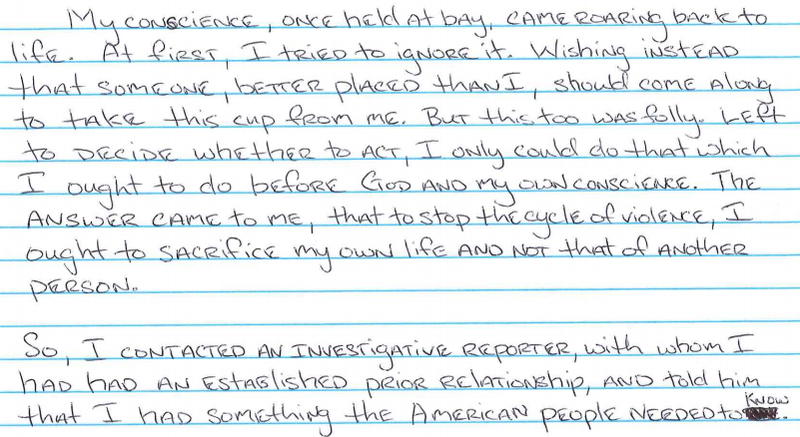 My conscience, once held at bay, came roaring back to
life. At first, I tried to ignore it. Wishing instead
that someone, better placed than I, should come along
to take this cup from me. But this too was folly. Left
to decide whether to act, I only could do that which
I ought to do before God and my own conscience. The
answer came to me, that to stop the cycle of violence, I
ought to sacrifice my own life and not that of another
person.
So, I contacted an investigative reporter, with whom I
had had an established prior relationship, and told him
that I had something the American people needed to know.